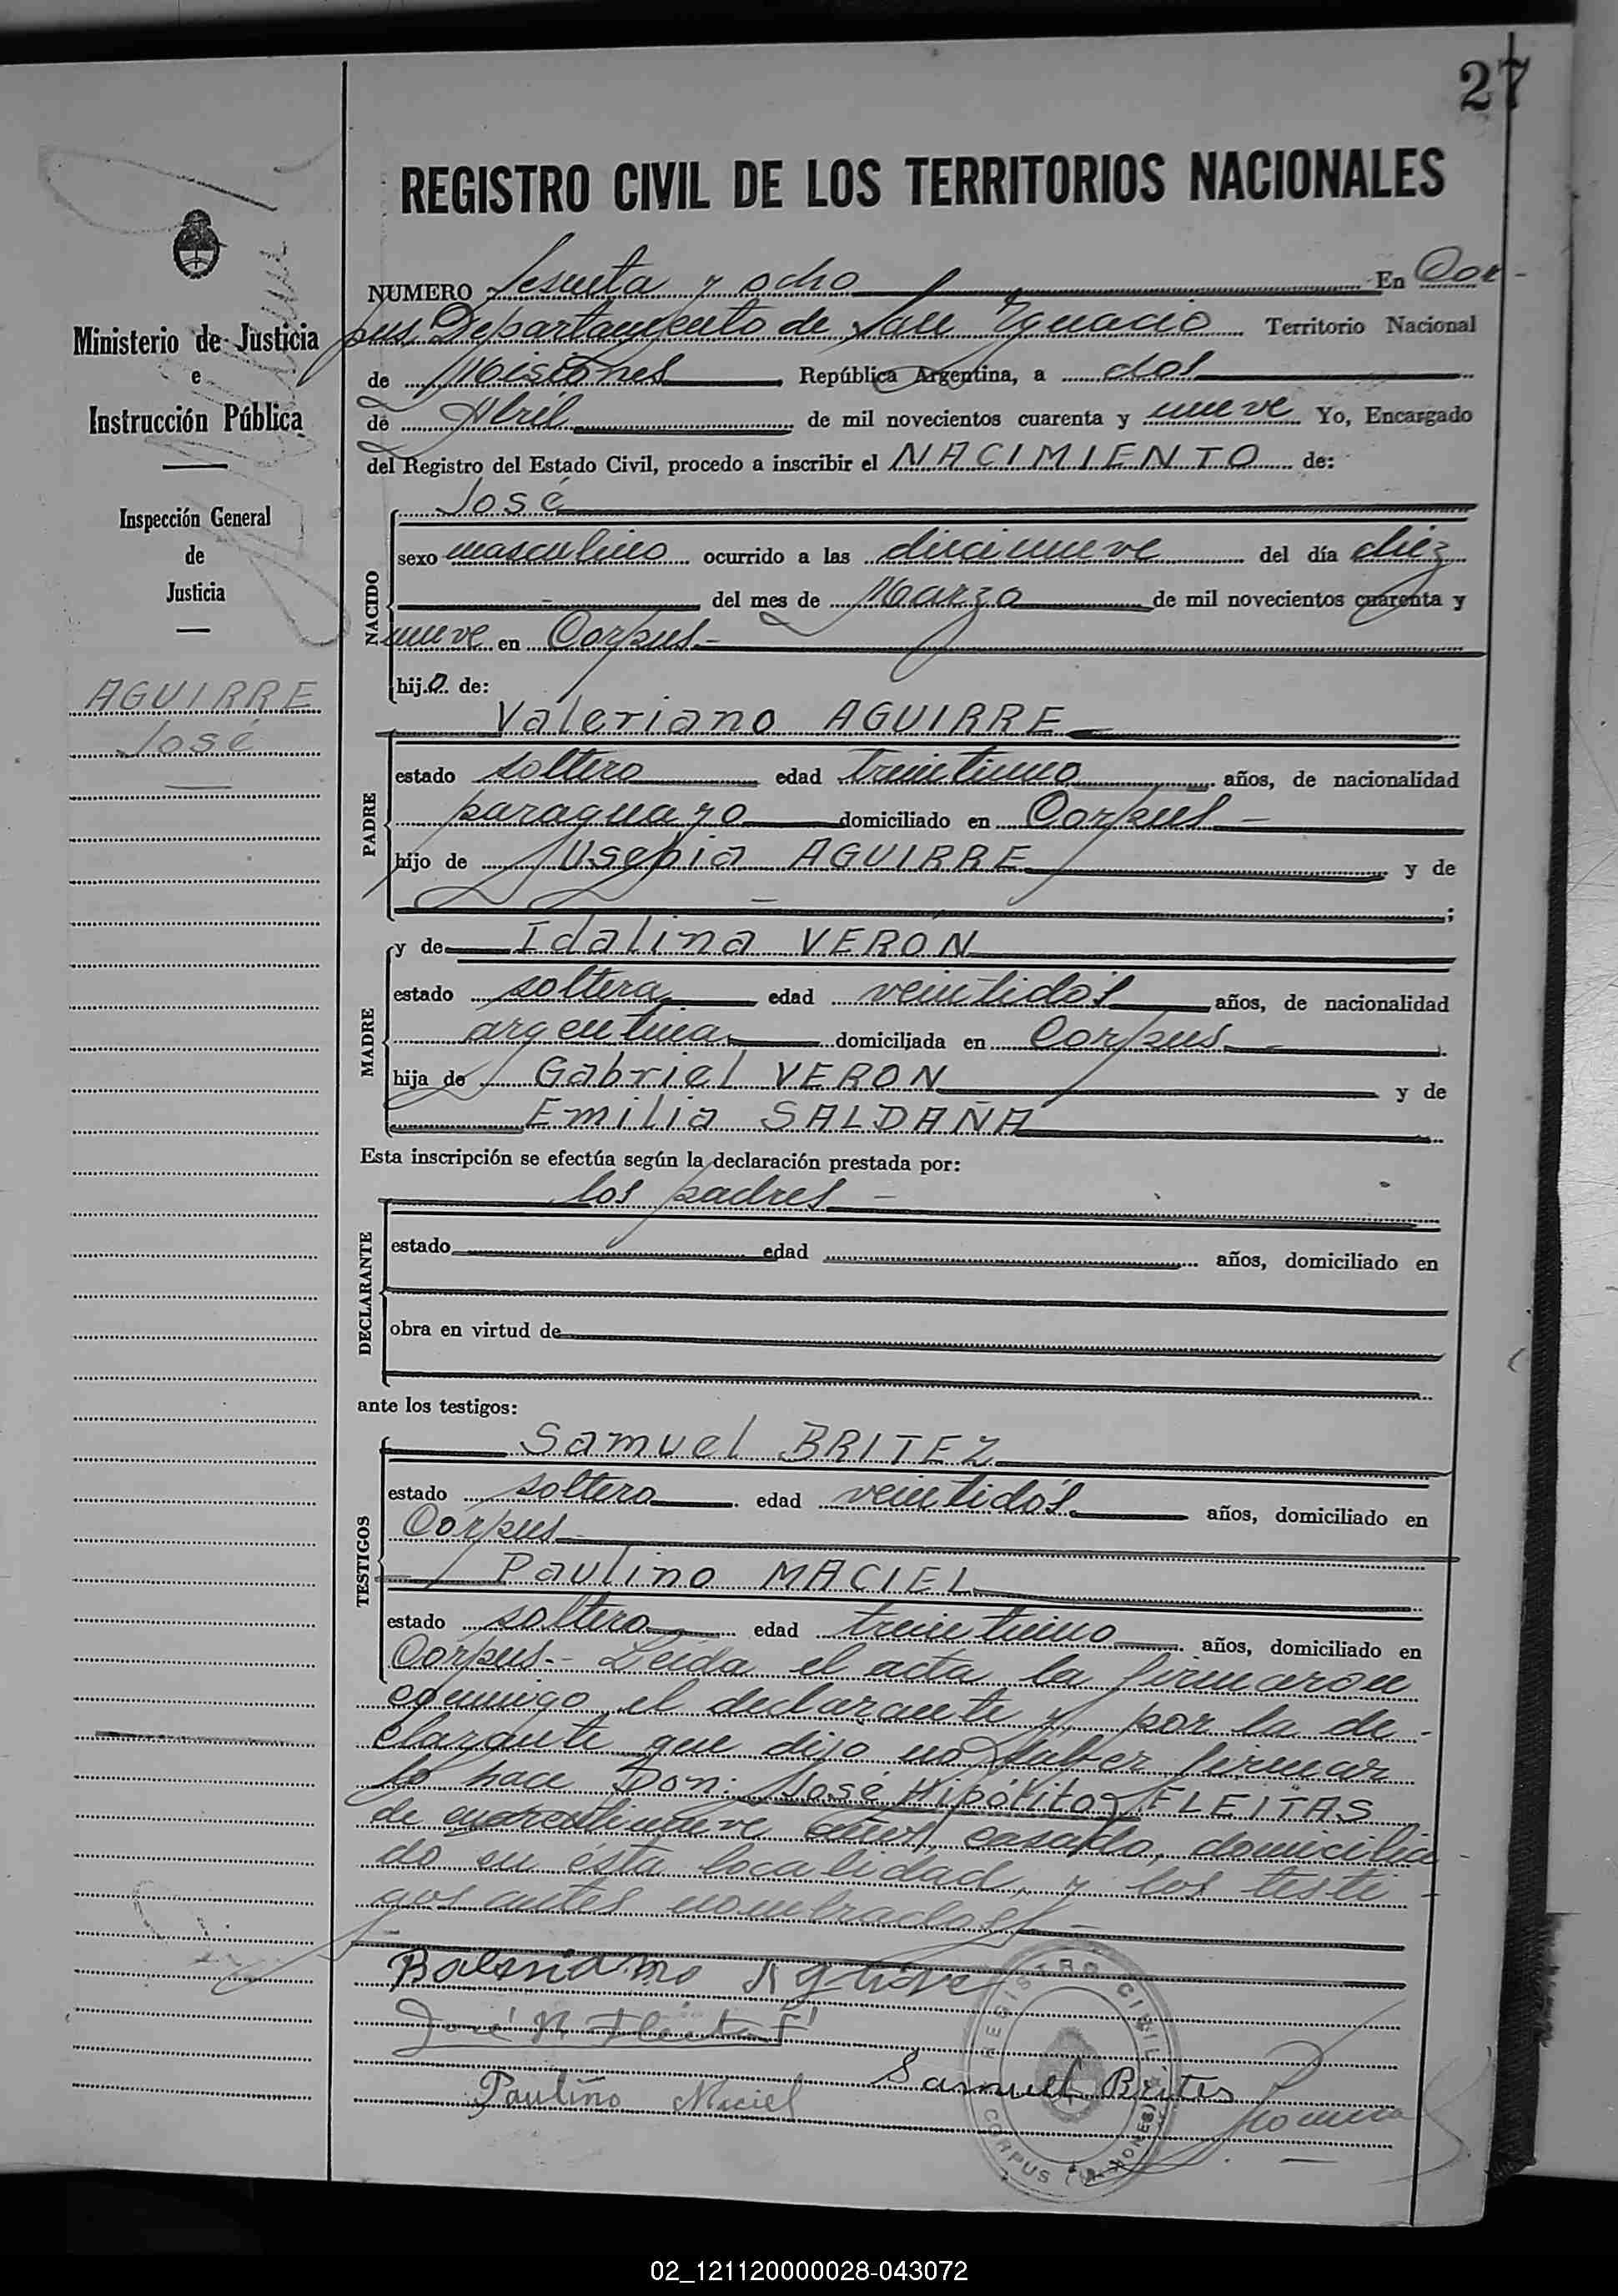 27
REGISTRO CIVIL DE LOS TERRITORIOS NACIONALES
Ministerio de Justicia
e
Instrucción Pública
Inspección General
de
Justicia
AGUIRRE
José
NUMERO Sesenta y ocho En Cor-
pus, Departamento de San Ignacio Territorio Nacional
de Misiones República Argentina, a dos
de Abril de mil novecientos cuarenta y nueve Yo, Encargado
del Registro del Estado Civil, procedo a inscribir el NACIMIENTO de:
NACIDO
José
sexo masculino ocurrido a las diecinueve del día diez
del mes de Marzo de mil novecientos cuarenta y
nueve en Corpus.-
hijo de:
PADRE
Valeriano AGUIRRE
estado soltero edad treintiuno años, de nacionalidad
paraguayo domiciliado en Corpus -
hijo de Usebia AGUIRRE y de
;
MADRE
y de Idalina VERON
estado soltera edad veintidós años, de nacionalidad
argentina domiciliada en Corpus -
hija de Gabriel VERON y de
Emilia SALDAÑA
Esta inscripción se efectúa según la declaración prestada por:
DECLARANTE
los padres -
estado edad años, domiciliado en
obra en virtud de
ante los testigos:
TESTIGOS
Samuel BRITEZ
estado soltero edad veintidós años, domiciliado en
Corpus
Paulino MACIEL
estado soltero edad treintiuno años, domiciliado en
Corpus.- Leída el acta la firmaron
conmigo el declarante y por la de-
clarante que dijo no saber firmar
lo hace Don: José Hipólito FLEITAS
de cuarentinueve años, casado, domicilia-
do en ésta localidad, y los testi-
gos antes nombrados.-
Baleriano Aguirre
José H Fleitas
Samuel Brites
Paulino Maciel
REGISTRO CIVIL
CORPUS (MISIONES)
02_121120000028-043072